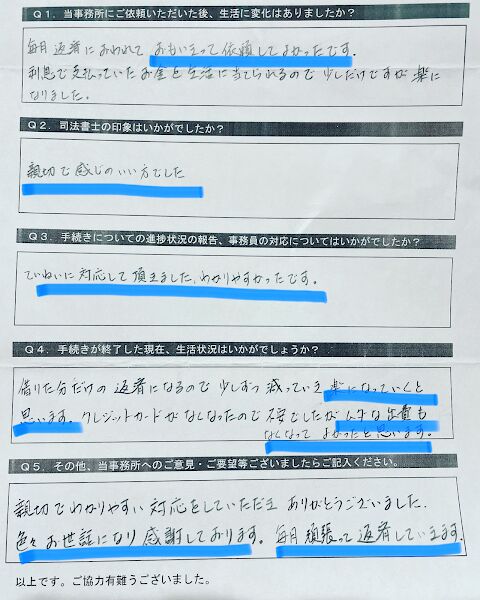 Q1. 当事務所にご依頼いただいた後、生活に変化はありましたか？
毎月返済におわれて おもいきって依頼してよかったです。
利息で支払っていたお金を生活に当てられるので少しだけですが楽に
なりました。
Q2. 司法書士の印象はいかがでしたか？
親切で感じのいい方でした
Q3. 手続きについての進捗状況の報告、事務員の対応についてはいかがでしたか？
ていねいに対応して頂きました、わかりやすかったです。
Q4. 手続きが終了した現在、生活状況はいかがでしょうか？
借りた分だけの返済になるので少しずつ減っていき楽になっていくと
思います。クレジットカードがなくなったので不安でしたがムダな出費も
なくなってよかったと思います。
Q5. その他、当事務所へのご意見・ご要望等ございましたらご記入ください。
親切でわかりやすい対応をしていただき ありがとうございました。
色々お世話になり感謝しております。毎月頑張って返済していきます。
以上です。ご協力有難うございました。